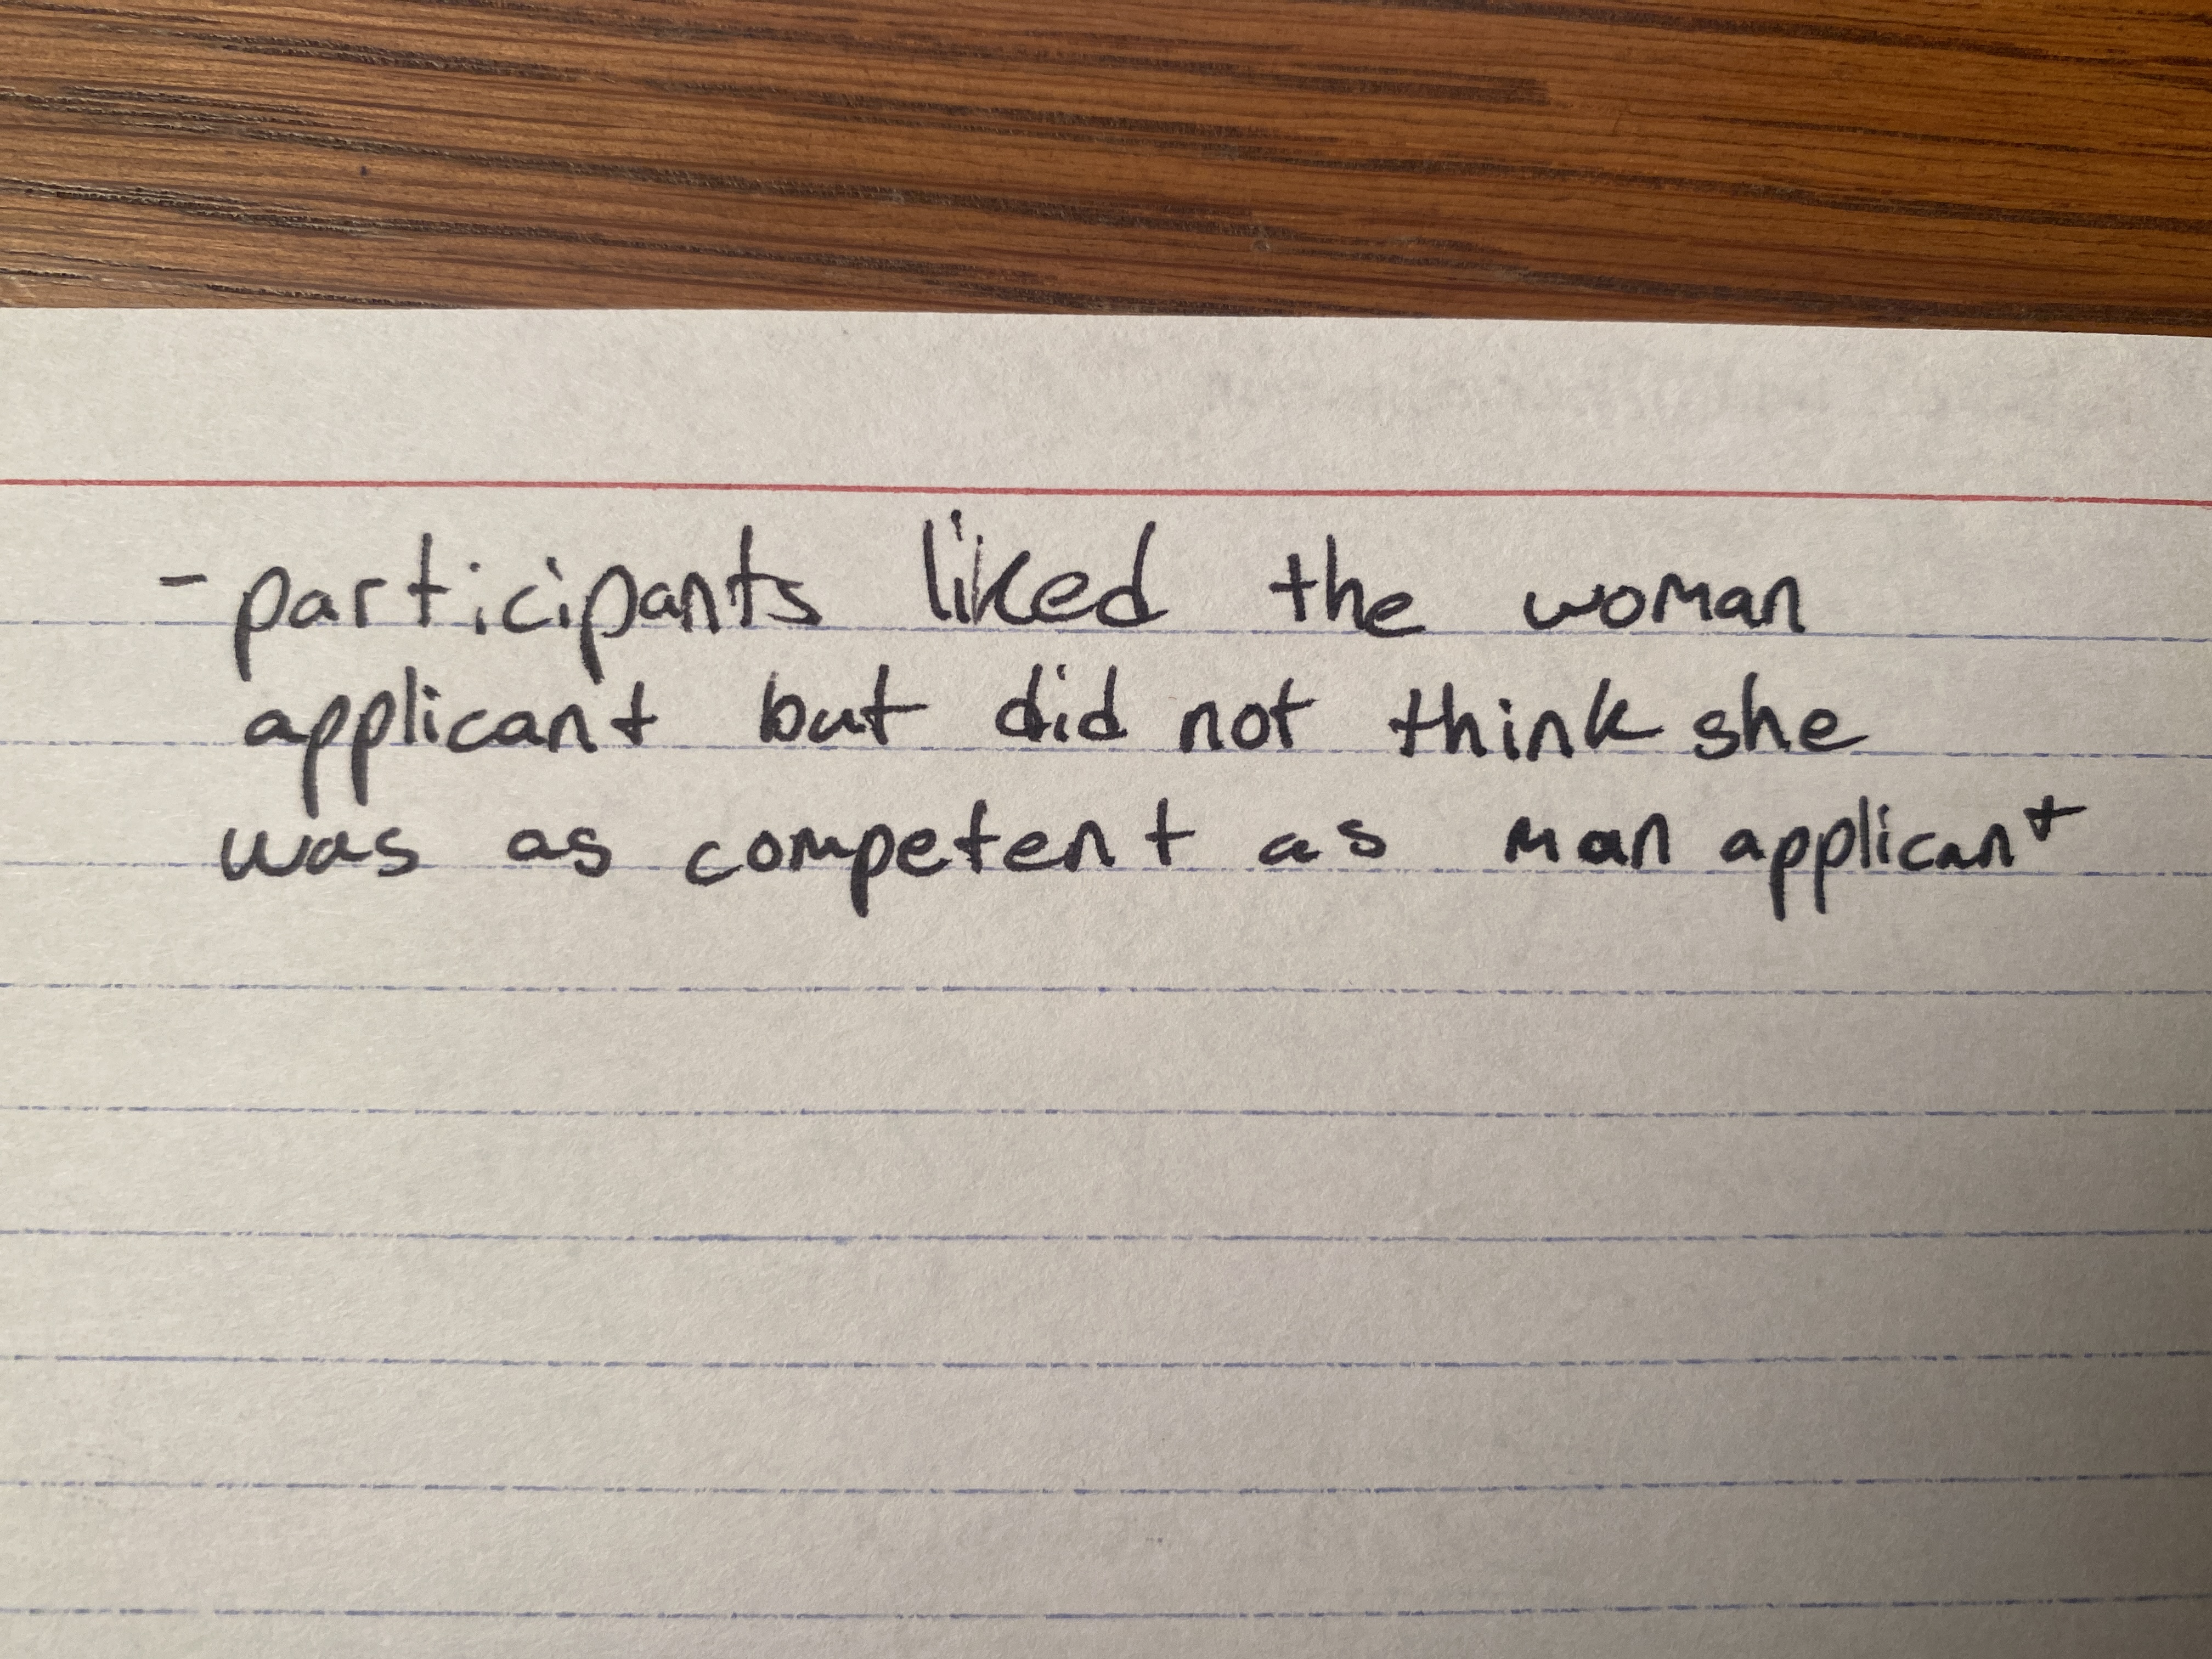 - participants liked the woman
applicant but did not think she
was as competent as man applicant